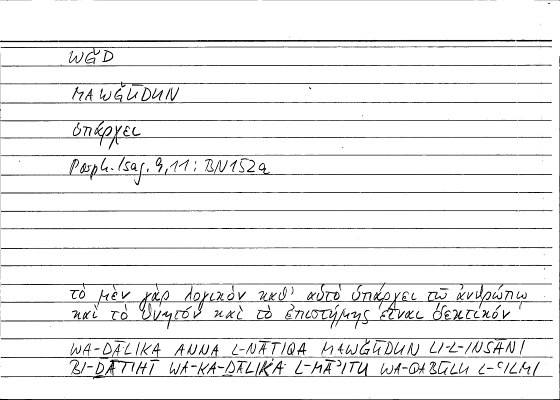 WǦD
MAWǦŪDUN
ὑπάρχει
Porph. Isag. 9,11 : BN152a
τὸ μὲν γὰρ λογικὸν καθ' αὑτὸ ὑπάρχει τῷ ἀνθρώπῳ
καὶ τὸ θνητόν καὶ τὸ ἐπιστήμης εἶναι δεκτικόν
WA-ḎĀLIKA ANNA L-NĀṬIQA MAWǦŪDUN LI-L-INSĀNI
BI-ḎĀTIHĪ WA-KA-ḎĀLIKA L-MĀʾITU WA-QABŪLU L-ʿILMI